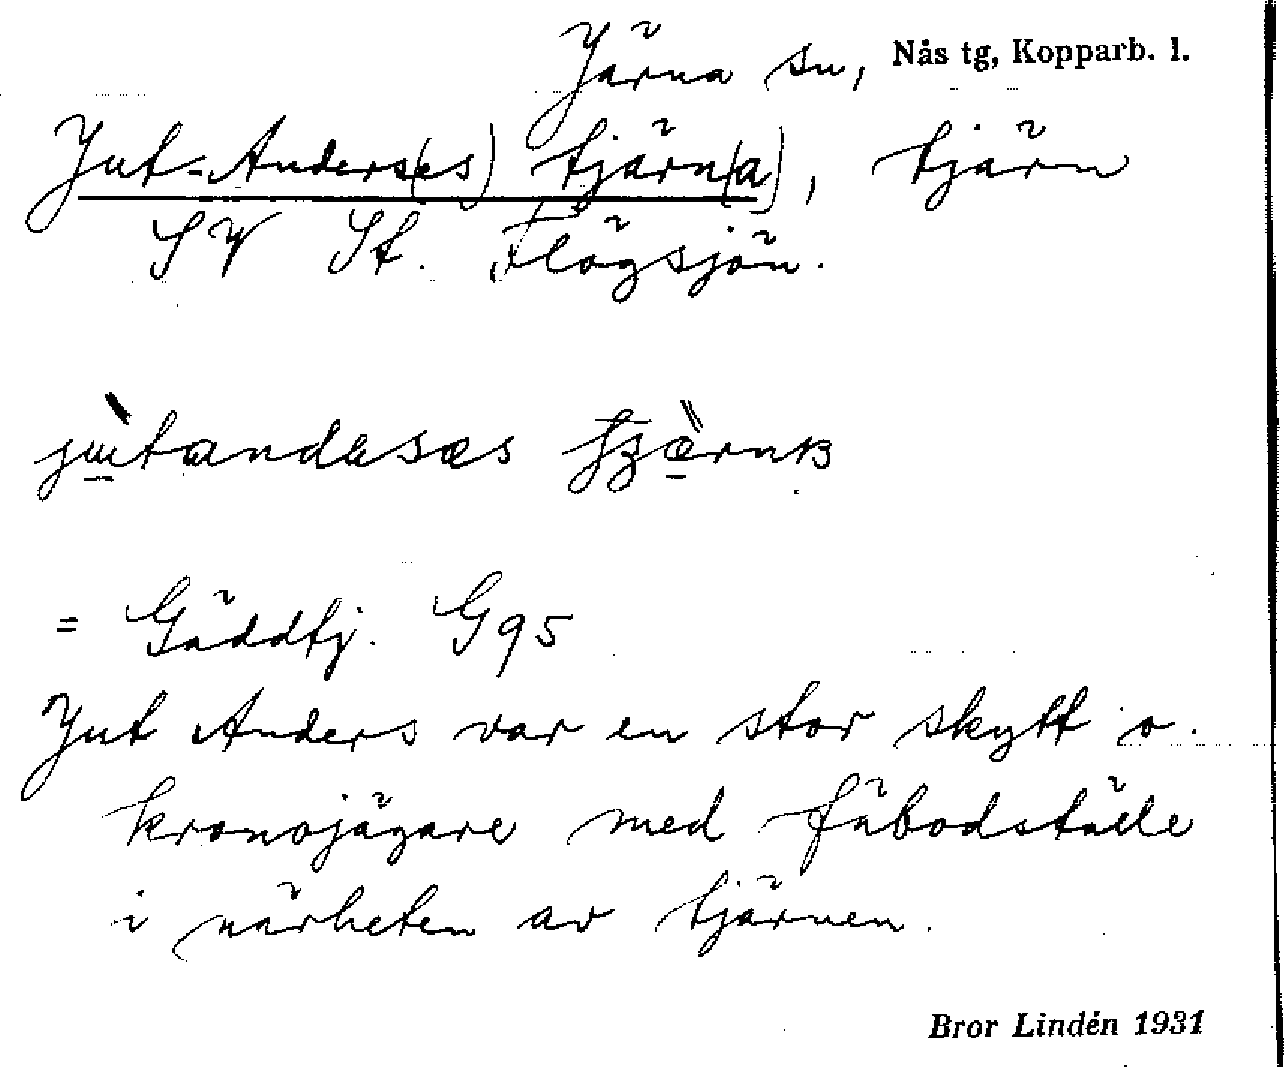 Järna sn, Nås tg, Kopparb. l.
Jut-Anders(es) tjärn(a), tjärn
SV St. Flögsjön.
= Gäddtj. G95
Jut Anders var en stor skytt o.
kronojägare med fäbodställe
i närheten av tjärnen.
Bror Lindén 1931